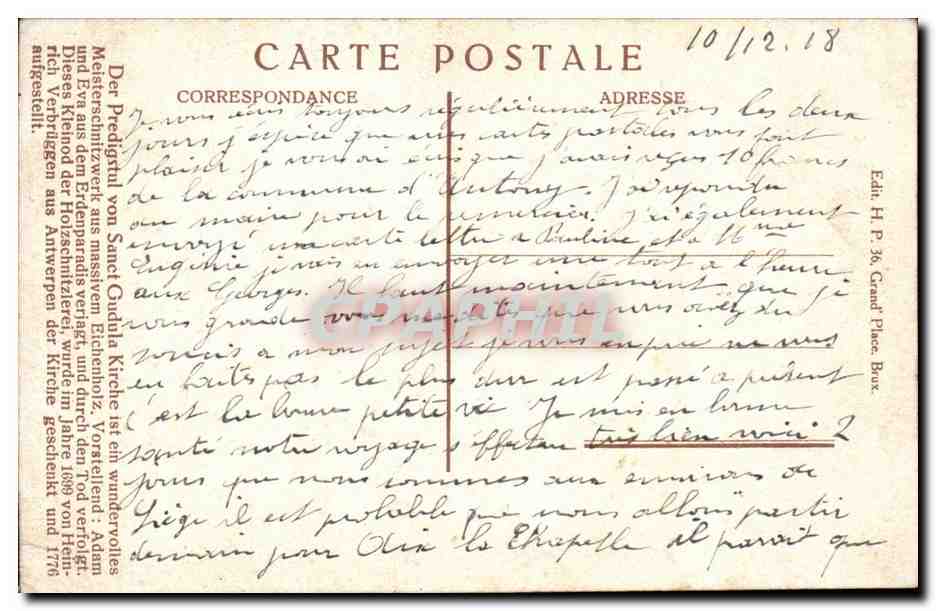 10/12.18
CARTE POSTALE
CORRESPONDANCE
ADRESSE
Je vous écris toujours régulièrement tous les deux
jours j'espère que mes cartes postales vous font
plaisir je vous ai écris que j'avais reçus 10 francs
de la commune d'Antony. J'ai répondu
au maire pour le remercier. J'ai également
envoyé une carte lettre a Pauline et a Mme
Eugénie je vais en envoyer une tout a l'heure
aux Georges. Il faut maintenant que je
vous gronde vous me dites que vous avez du
soucis a mon sujet je vous en prie ne vous
en faites pas le plus dur est passé a présent
c'est la bonne petite vie Je suis en bonne
santé notre voyage s'effectue très bien voici 2
jours que nous sommes aux environs de
Liège il est probable que nous allons partir
demain pour Aix la Chapelle il parait que
Der Predigstul von Sanct Gudula Kirche ist ein wundervolles
Meisterschnitzwerk aus massivem Eichenholz. Vorstellend : Adam
und Eva aus dem Erdenparadis verjagt, und durch den Tod verfolgt.
Dieses Kleinod der Holzschnitzlerei, wurde im Jahre 1699 von Hein-
rich Verbrüggen aus Antwerpen der Kirche geschenkt und 1776
aufgestellt.
Edit. H. P. 36, Grand' Place, Brux.
CPAPHIL